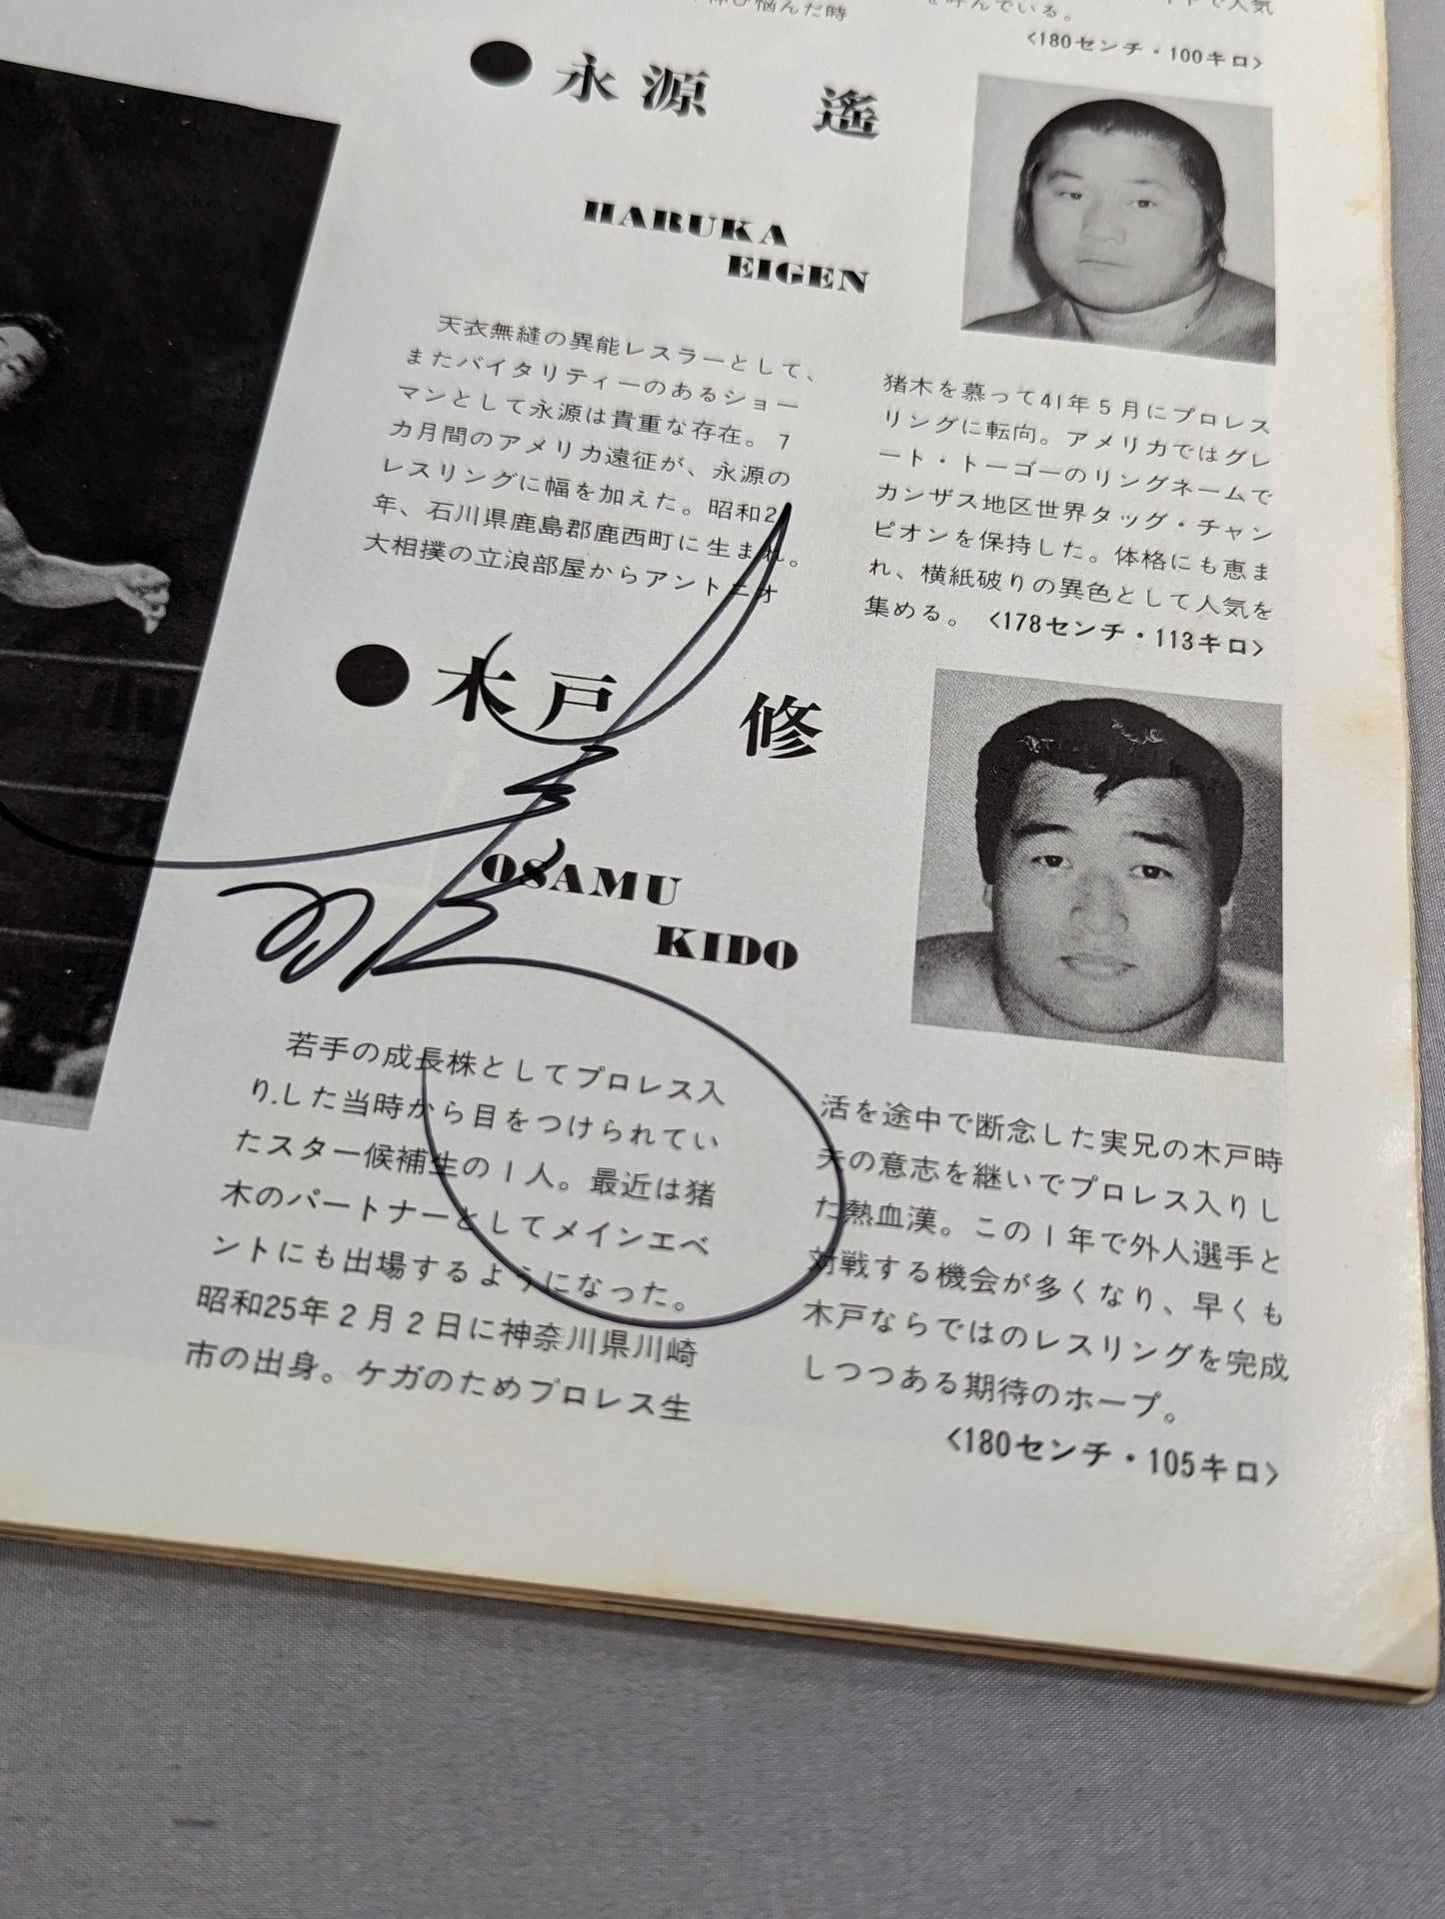 伸び悩んだ時
を呼んでいる。
<180センチ・100キロ>
●永源 遙
HARUKA
EIGEN
天衣無縫の異能レスラーとして、
またバイタリティーのあるショー
マンとして永源は貴重な存在。7
カ月間のアメリカ遠征が、永源の
レスリングに幅を加えた。昭和2
年、石川県鹿島郡鹿西町に生まれ。
大相撲の立浪部屋からアントニオ
猪木を慕って41年5月にプロレス
リングに転向。アメリカではグレ
ート・トーゴーのリングネームで
カンザス地区世界タッグ・チャン
ピオンを保持した。体格にも恵ま
れ、横紙破りの異色として人気を
集める。 <178センチ・113キロ>
●木戸 修
OSAMU
KIDO
若手の成長株としてプロレス入
りした当時から目をつけられてい
たスター候補生の1人。最近は猪
木のパートナーとしてメインエベ
ントにも出場するようになった。
昭和25年2月2日に神奈川県川崎
市の出身。ケガのためプロレス生
活を途中で断念した実兄の木戸時
夫の意志を継いでプロレス入りし
た熱血漢。この1年で外人選手と
対戦する機会が多くなり、早くも
木戸ならではのレスリングを完成
しつつある期待のホープ。
<180センチ・105キロ>